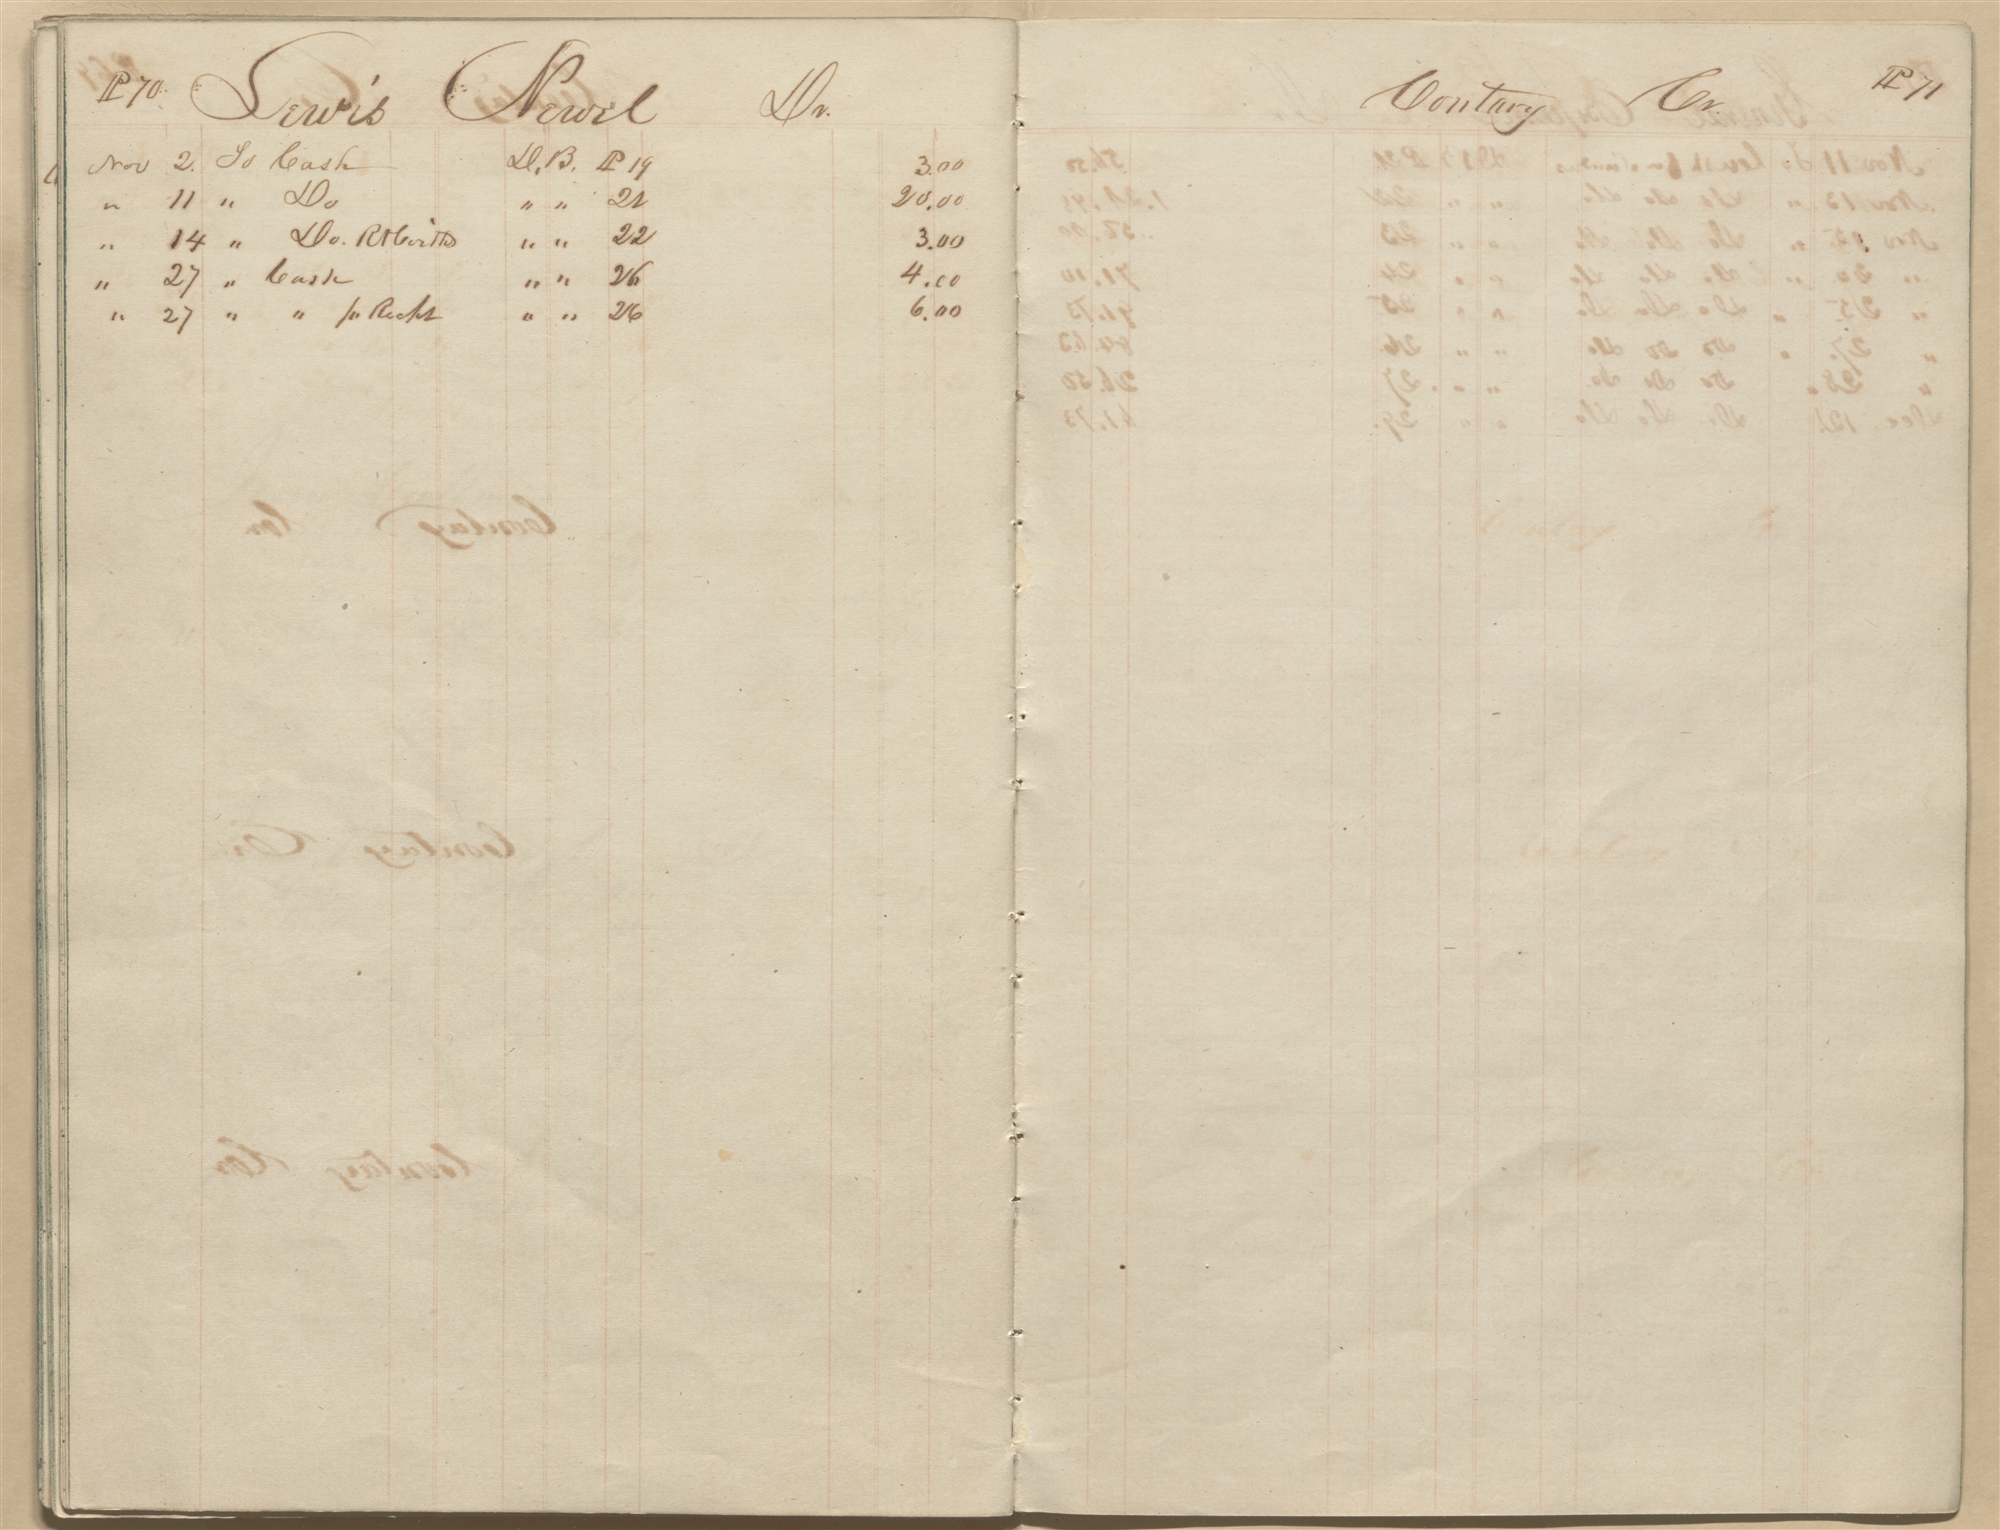 P 70. Lewis Newel Dr.
Nov 2. To Cash D.B. P 19 3.00
" 11 " Do " " 21 20.00
" 14 " Do. " " 22 3.00
" 27 " Cash " " 26 4.00
" 27 " " pr Recpt " " 26 6.00
Contary Cr. P 71